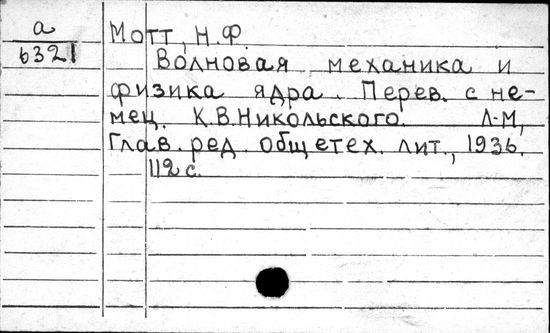 а
6321
Мотт, Н.Ф.
Волновая механика и
физика ядра. Перев. с не-
мец. К.В.Никольского. Л-М,
Глав. ред. общетех. лит., 1936.
112 с.